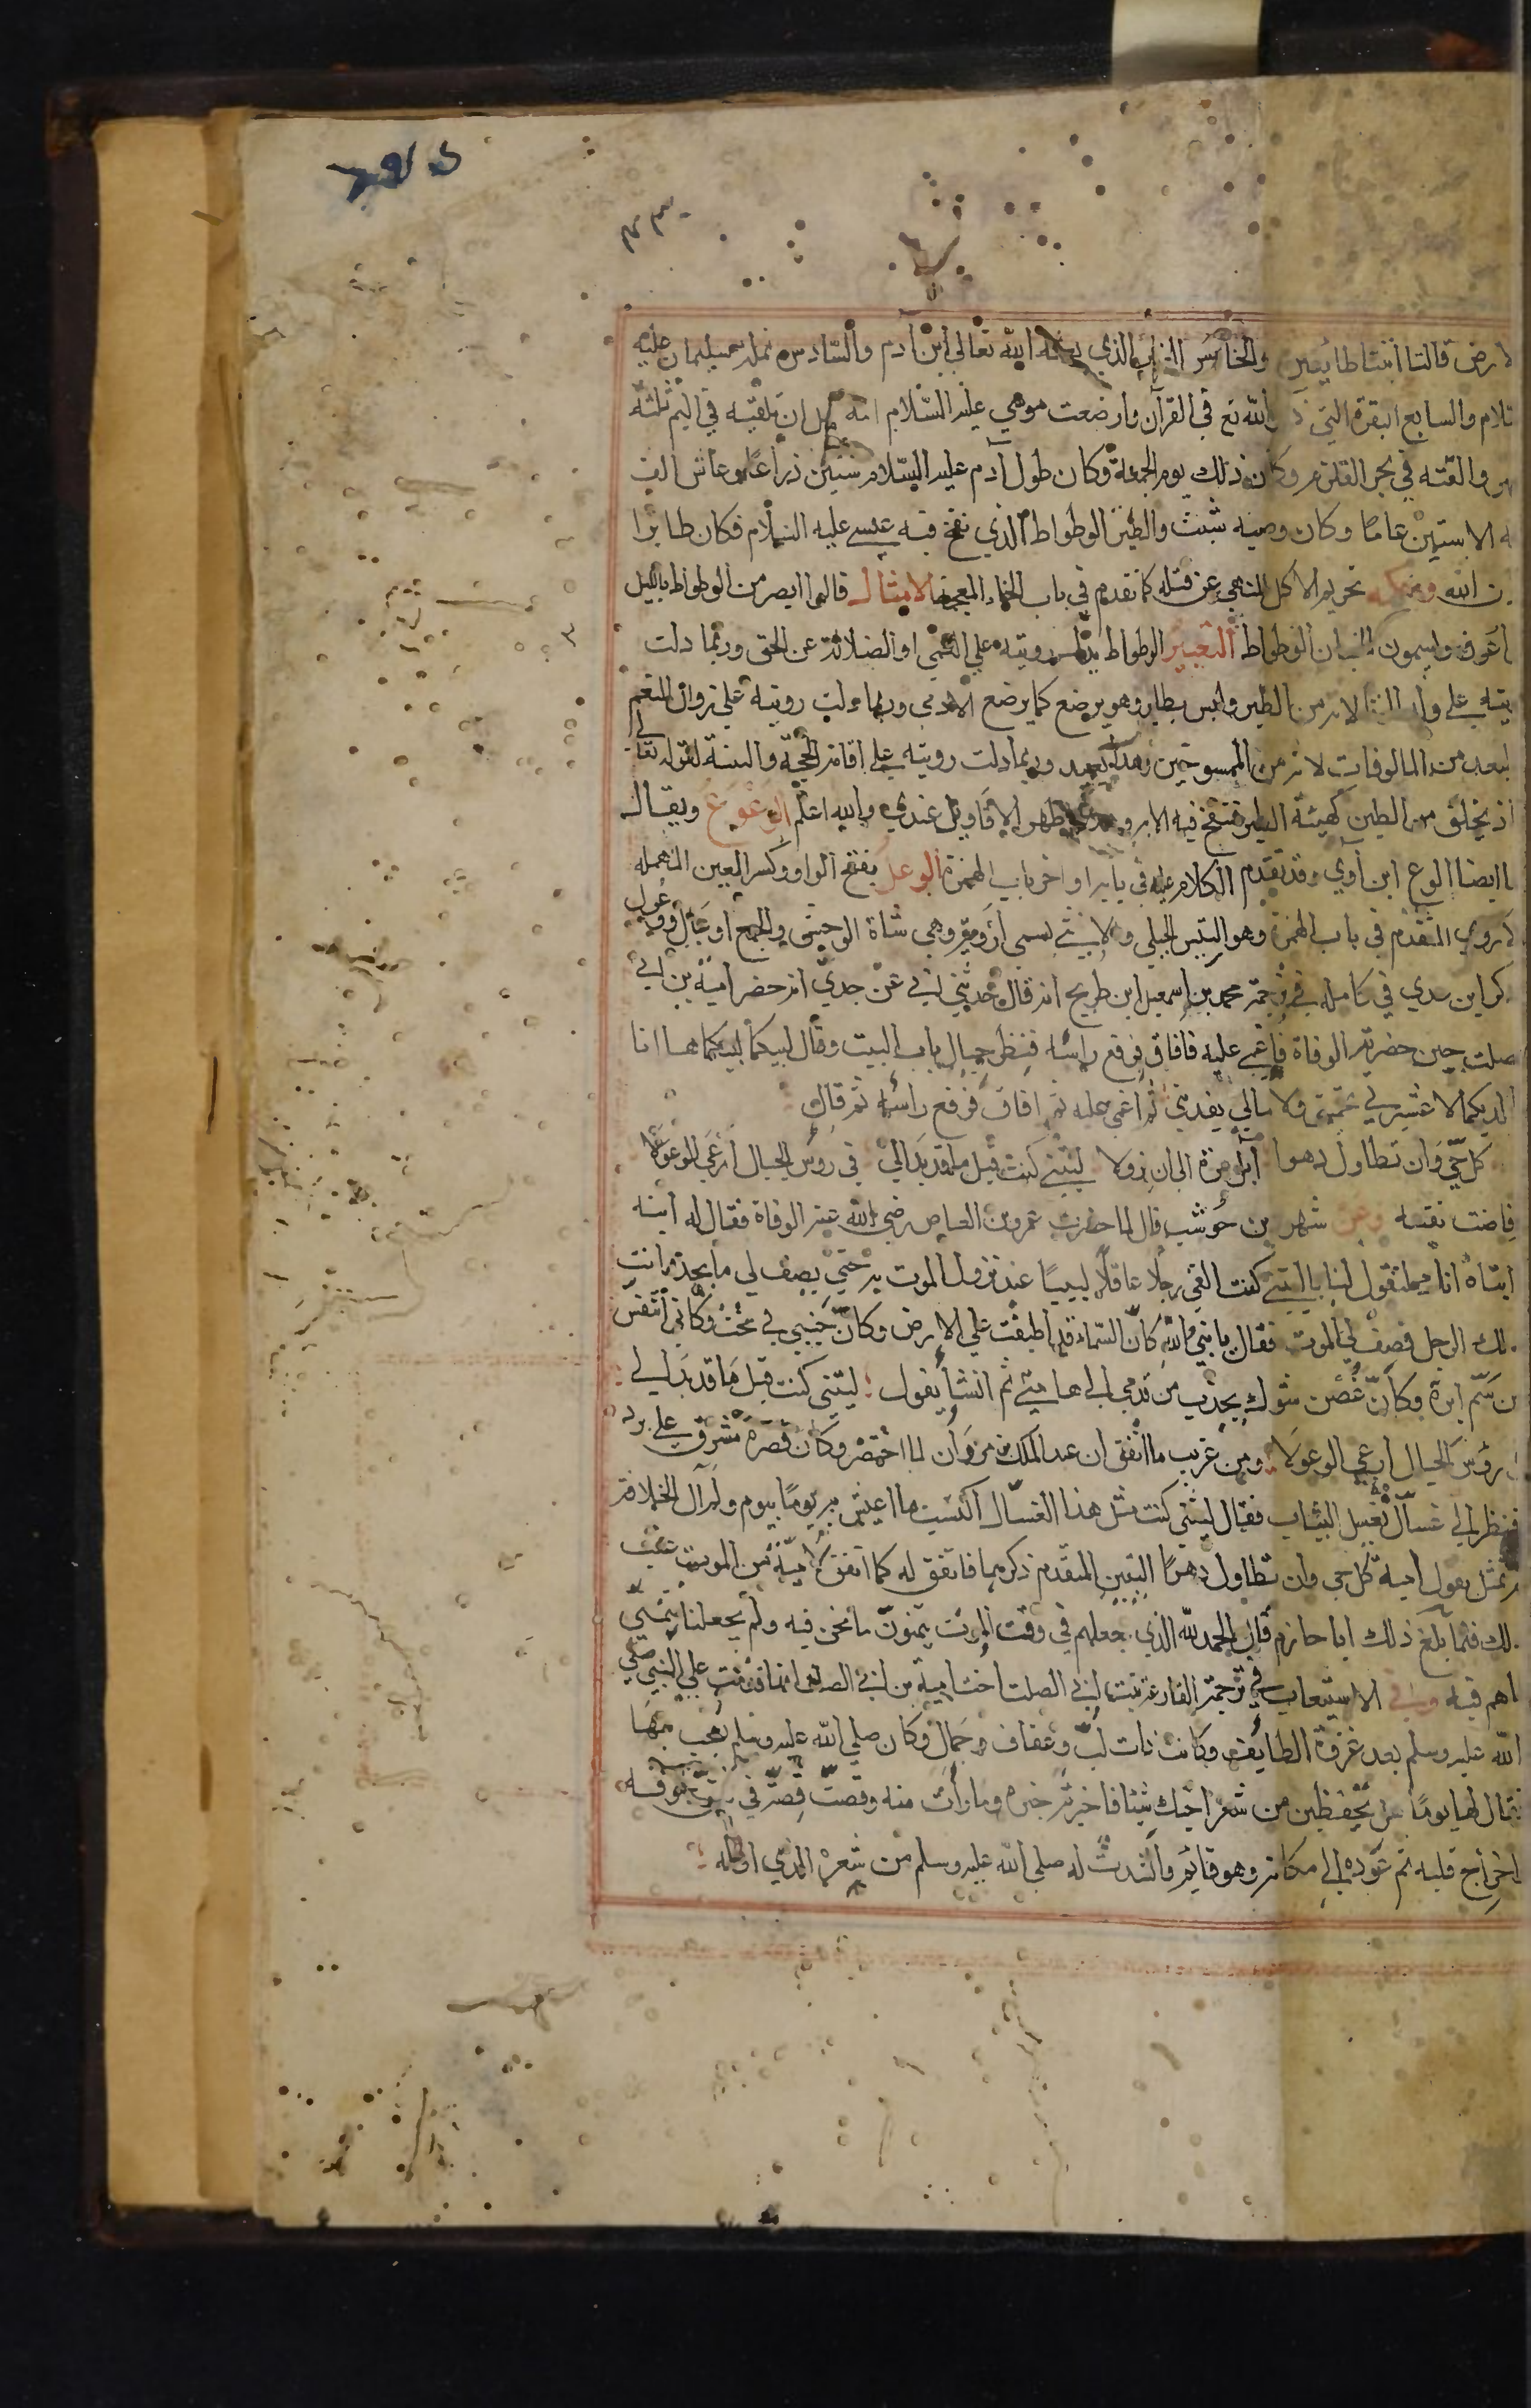 لارض قالتا اتينا طائعين والخامس الغراب الذي بعثه الله تعالى ابن آدم والسادس نملة سليمان عليه
تلام والسابع البقرة التي ذكر الله تع في القرآن وارضعت موسي عليه السلام امه قبل ان تلقيه في اليم ثلثة
هر والقته في بحر القلزم وكان ذلك يوم الجمعة وكان طول آدم عليه السلام ستين ذراعا وعاش الف
ه الا ستين عاما وكان وصيه شيث والطين الوطواط الذي نفخ فيه عيسي عليه السلام فكان طائرا
ن الله وحكمه تحريم الاكل للنهي عن قتله كما تقدم في باب الخاء المعجمة الامثال قالوا ابصر من الوطواط بالليل
اعرف ويسمون الجبان الوطواط التعبير الوطواط تدل رويته علي العمي او الضلالة عن الحق وربما دلت
يته علي ولد الزنا لانه من الطير وليس بطاير وهو يرضع كما يرضع الادمي وربما دلت رويته علي زوال النعم
لبعد من المالوفات لانه من الممسوخين وهذا بعيد وربما دلت رويته علي اقامة الحجة والبينة لقوله تعالي
اذ يخلق من الطين كهيئة الطير فتنفخ فيه الاية وهذا اظهر الاقاويل عندي والله اعلم الوعوع ويقال
ا ايضا الوع ابن آوي وقد تقدم الكلام عليه في بابه اواخر باب الهمزة الوعل بفتح الواو وكسر العين المهمله
لاروي المتقدم في باب الهمزة وهو التيس الجبلي والانثي تسمي أروية وهي شاة الوحش والجمع اوعال ووعول
كر ابن عدي في كامله في ترجمة محمد بن اسمعيل ابن طريح انه قال حدثني ابي عن جدي انه حضر امية بن ابي
صلت حين حضرته الوفاة فاغمي عليه فافاق فرفع راسه فنظر حيال باب البيت وقال لبيكما لبيكما ها انا
الديكما لا عشيرتي تحميني ولا مالي يفديني ثم اغمي عليه ثم افاق فرفع راسه ثم قال
كل حي وان تطاول دهرا آيل امره الى ان يزولا ليتني كنت قبل ما قد بدا لي في روس الجبال ارعي الوعولا
فاضت نفسه وعن شهر بن حوشب قال لما حضرت عمرو بن العاص رضي الله عنه الوفاة فقال له ابنه
ابتاه انك كنت تقول لنا ياليتني كنت القي رجلا عاقلا لبيبا عند نزول الموت به حتي يصف لي ما يجد وانت
لك الرجل فصف لي الموت فقال يا بني والله كأن السماء قد اطبقت علي الارض وكأن جنبي في تخت وكاني اتنفس
ن سم ابرة وكأن غصن شوك يجذب من قدمي الي هامتي ثم انشأ يقول ليتني كنت قبل ما قد بدا لي
رؤس الجبال ارعي الوعولا ومن غريب ما اتفق ان عبد الملك بن مروان لما احتضر وكان قصره مشرف علي بردي
فنظر الي غسال يغسل الثياب فقال ليتني كنت مثل هذا الغسال اكتسب ما اعيش به يوما بيوم ولم آل الخلافة
م تمثل بقول امية كل حي وان تطاول دهرا البيتين المتقدم ذكرهما فاتفق له كما اتفق لامية من الموت عقب
لك فلما بلغ ذلك ابا حازم قال الحمد لله الذي جعلهم في وقت الموت يتمنون ما نحن فيه ولم يجعلنا نتمني
اهم فيه وفي الاستيعاب في ترجمة الفارعة بنت ابي الصلت اخت امية بن ابي الصلت انها قدمت علي النبي صلي
الله عليه وسلم بعد غزوة الطايف وكانت ذات لب وعفاف وجمال وكان صلي الله عليه وسلم يعجب بها
فقال لها يوما هل تحفظين من شعر اخيك شيئا فاخبرته خبره وما رأت منه وقصت قصته في شق جوفه
اخراج قلبه ثم عوده الي مكانه وهو قايم وانشدت له صلي الله عليه وسلم من شعره الذي اوله